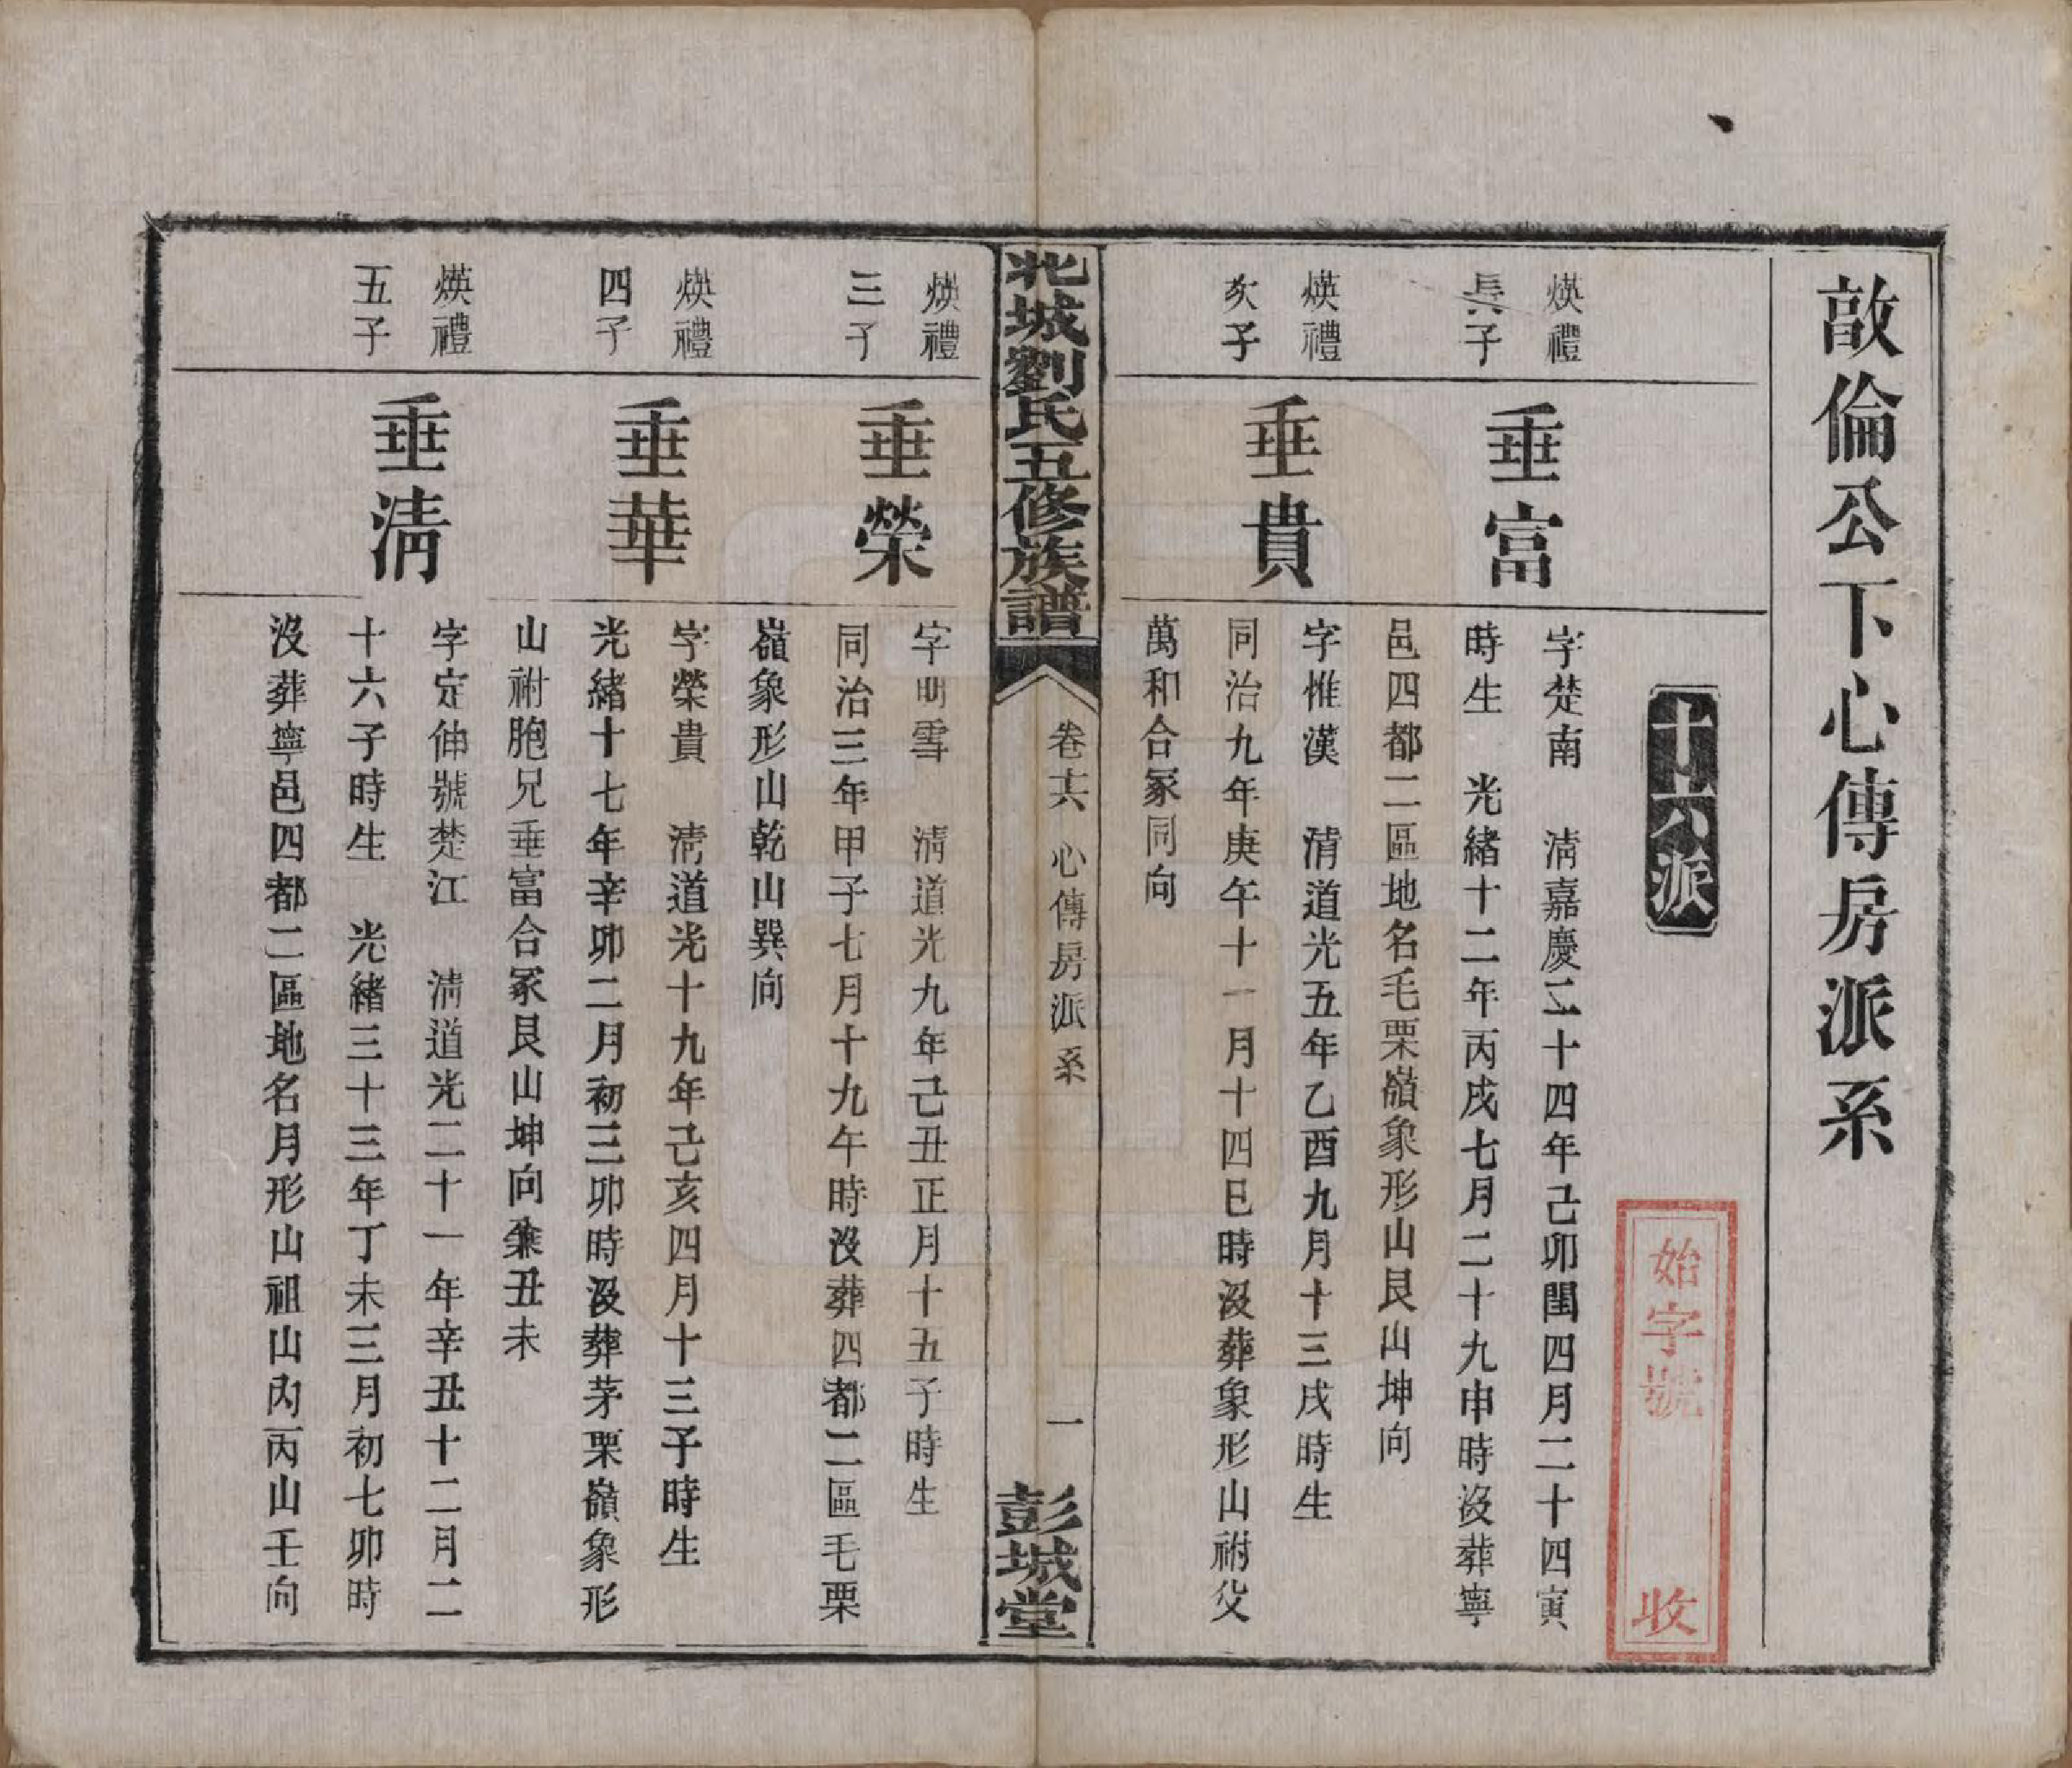 敨倫公下心傳房派系
十六派
始字號 收
煐禮
長子
垂富
字楚南 淸嘉慶二十四年己卯閏四月二十四寅
時生 光緒十二年丙戌七月二十九申時沒葬寧
邑四都二區地名毛栗嶺象形山艮山坤向
煐禮
次子
垂貴
字惟漢 淸道光五年乙酉九月十三戌時生
同治九年庚午十一月十四巳時沒葬象形山祔父
萬和合冢同向
北城劉氏五修族譜
卷十六 心傳房派系
一
彭城堂
煐禮
三子
垂榮
字明雪 淸道光九年己丑正月十五子時生
同治三年甲子七月十九午時沒葬四都二區毛栗
嶺象形山乾山巽向
煐禮
四子
垂華
字榮貴 淸道光十九年己亥四月十三子時生
光緒十七年辛卯二月初三卯時沒葬茅栗嶺象形
山祔胞兄垂富合冢艮山坤向兼丑未
煐禮
五子
垂淸
字定伸號楚江 淸道光二十一年辛丑十二月二
十六子時生 光緒三十三年丁未三月初七卯時
沒葬寧邑四都二區地名月形山祖山內丙山壬向